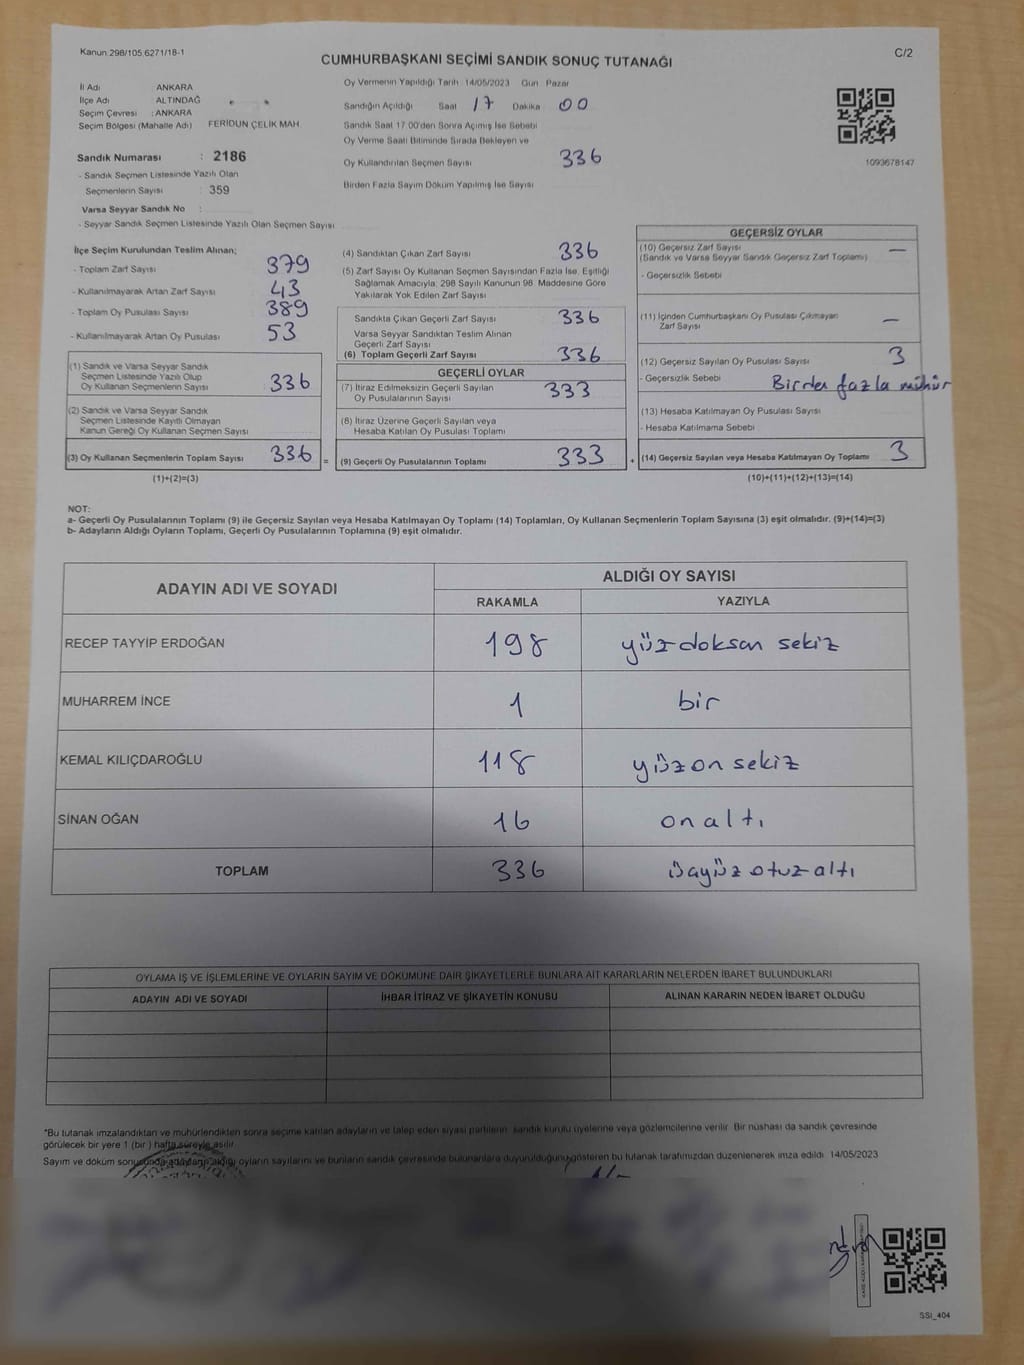 Kanun:298/105,6271/18-1
C/2
CUMHURBAŞKANI SEÇİMİ SANDIK SONUÇ TUTANAĞI
İl Adı ANKARA
İlçe Adı ALTINDAĞ
Seçim Çevresi : ANKARA
Seçim Bölgesi (Mahalle Adı) FERİDUN ÇELİK MAH
Sandık Numarası : 2186
- Sandık Seçmen Listesinde Yazılı Olan
Seçmenlerin Sayısı : 359
Varsa Seyyar Sandık No :
- Seyyar Sandık Seçmen Listesinde Yazılı Olan Seçmen Sayısı
Oy Vermenin Yapıldığı Tarih 14/05/2023 Gün Pazar
Sandığın Açıldığı Saat 17 Dakika 00
Sandık Saat 17.00'den Sonra Açılmış İse Sebebi
Oy Verme Saati Bitiminde Sırada Bekleyen ve
Oy Kullandırılan Seçmen Sayısı 336
Birden Fazla Sayım Döküm Yapılmış İse Sayısı
1093678147
İlçe Seçim Kurulundan Teslim Alınan;
- Toplam Zarf Sayısı 379
- Kullanılmayarak Artan Zarf Sayısı 43
- Toplam Oy Pusulası Sayısı 389
- Kullanılmayarak Artan Oy Pusulası 53
(1) Sandık ve Varsa Seyyar Sandık
Seçmen Listesinde Yazılı Olup
Oy Kullanan Seçmenlerin Sayısı 336
(2) Sandık ve Varsa Seyyar Sandık
Seçmen Listesinde Kayıtlı Olmayan
Kanun Gereği Oy Kullanan Seçmen Sayısı
(3) Oy Kullanan Seçmenlerin Toplam Sayısı 336 =
(1)+(2)=(3)
(4) Sandıktan Çıkan Zarf Sayısı 336
(5) Zarf Sayısı Oy Kullanan Seçmen Sayısından Fazla İse, Eşitliği
Sağlamak Amacıyla; 298 Sayılı Kanunun 98. Maddesine Göre
Yakılarak Yok Edilen Zarf Sayısı
Sandıkta Çıkan Geçerli Zarf Sayısı 336
Varsa Seyyar Sandıktan Teslim Alınan
Geçerli Zarf Sayısı
(6) Toplam Geçerli Zarf Sayısı 336
GEÇERLİ OYLAR
(7) İtiraz Edilmeksizin Geçerli Sayılan
Oy Pusulalarının Sayısı 333
(8) İtiraz Üzerine Geçerli Sayılan veya
Hesaba Katılan Oy Pusulası Toplamı
(9) Geçerli Oy Pusulalarının Toplamı 333 +
GEÇERSİZ OYLAR
(10) Geçersiz Zarf Sayısı —
(Sandık ve Varsa Seyyar Sandık Geçersiz Zarf Toplamı)
- Geçersizlik Sebebi
(11) İçinden Cumhurbaşkanı Oy Pusulası Çıkmayan
Zarf Sayısı —
(12) Geçersiz Sayılan Oy Pusulası Sayısı 3
- Geçersizlik Sebebi Birden fazla mühür
(13) Hesaba Katılmayan Oy Pusulası Sayısı
- Hesaba Katılmama Sebebi
(14) Geçersiz Sayılan veya Hesaba Katılmayan Oy Toplamı 3
(10)+(11)+(12)+(13)=(14)
NOT:
a- Geçerli Oy Pusulalarının Toplamı (9) ile Geçersiz Sayılan veya Hesaba Katılmayan Oy Toplamı (14) Toplamları, Oy Kullanan Seçmenlerin Toplam Sayısına (3) eşit olmalıdır. (9)+(14)=(3)
b- Adayların Aldığı Oyların Toplamı, Geçerli Oy Pusulalarının Toplamına (9) eşit olmalıdır.
ADAYIN ADI VE SOYADI ALDIĞI OY SAYISI
RAKAMLA YAZIYLA
RECEP TAYYİP ERDOĞAN 198 yüzdoksan sekiz
MUHARREM İNCE 1 bir
KEMAL KILIÇDAROĞLU 118 yüzon sekiz
SİNAN OĞAN 16 onaltı
TOPLAM 336 üçyüz otuzaltı
OYLAMA İŞ VE İŞLEMLERİNE VE OYLARIN SAYIM VE DÖKÜMÜNE DAİR ŞİKAYETLERLE BUNLARA AİT KARARLARIN NELERDEN İBARET BULUNDUKLARI
ADAYIN ADI VE SOYADI İHBAR İTİRAZ VE ŞİKAYETİN KONUSU ALINAN KARARIN NEDEN İBARET OLDUĞU
*Bu tutanak imzalandıktan ve mühürlendikten sonra seçime katılan adayların ve talep eden siyasi partilerin sandık kurulu üyelerine veya gözlemcilerine verilir. Bir nüshası da sandık çevresinde
görülecek bir yere 1 (bir) hafta süreyle asılır.
Sayım ve döküm sonucunda adayların aldığı oyların sayılarını ve bunların sandık çevresinde bulunanlara duyurulduğunu gösteren bu tutanak tarafımızdan düzenlenerek imza edildi. 14/05/2023
SSİ_404